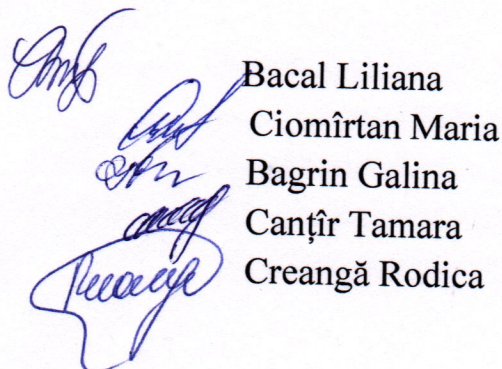 Bacal Liliana
Ciomîrtan Maria
Bagrin Galina
Canțîr Tamara
Creangă Rodica